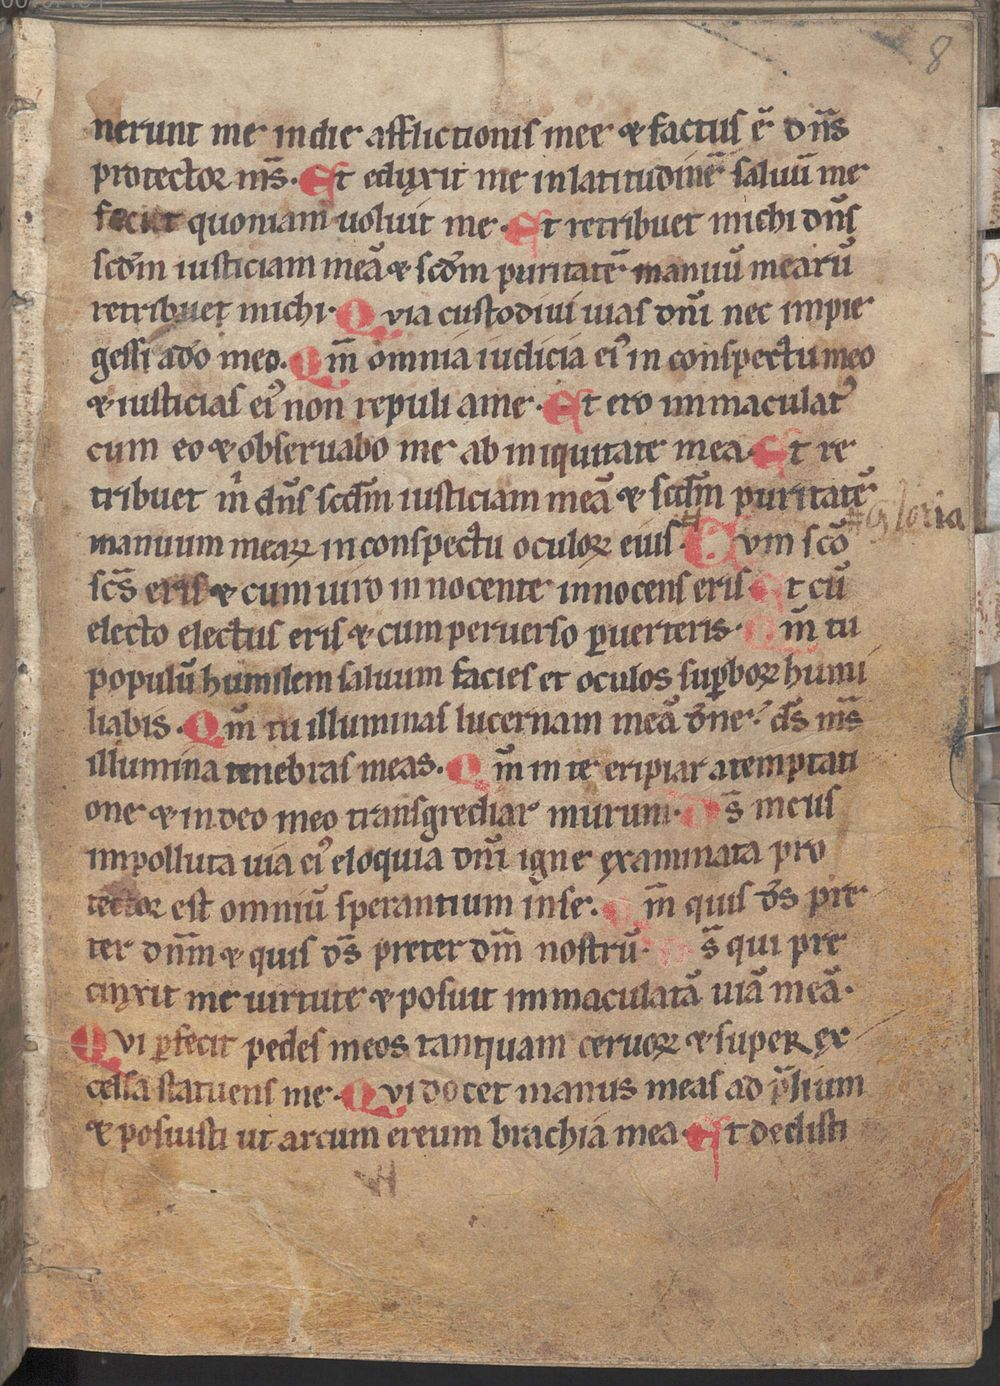 8
nerunt me in die afflictionis mee & factus ē dn̄s
protector ms̄. Et eduxit me in latitudinē saluū me
fecit quoniam uoluit me. Et retribuet michi dn̄s
scd̄m iusticiam meā & scd̄m puritatē manuū mearū
retribuet michi. Qvia custodiui uias dn̄i nec impie
gessi a do meo. Qm̄ omnia iudicia eiꝰ in conspectu meo
& iusticias eiꝰ non repuli a me. Et ero immaculatꝰ
cum eo & obseruabo me ab iniquitate mea. Et re
tribuet m̍ dn̄s scd̄m iusticiam meā & scd̄m puritatē
manuum mearꝝ in conspectu oculorꝝ eius. Cvm scō #Gloria
scs̄ eris & cum uiro innocente innocens eris. Et cū
electo electus eris & cum peruerso ꝑuerteris. Qm̄ tu
populū humilem saluum facies et oculos suꝑborꝝ humi
liabis. Qm̄ tu illuminas lucernam meā dn̄e. ds̄ ms̄
illumina tenebras meas. Qm̄ in te eripiar a temptati
one & in deo meo transgrediar murum. Ds̄ meus
impolluta uia eiꝰ eloquia dn̄i igne examinata pro
tector est omniū sperantium in se. Qm̄ quis ds̄ pre
ter dnm̄ & quis ds̄ preter dm̄ nostrū. Ds̄ qui pre
cinxit me uirtute & posuit immaculatā uiā meā.
Qvi ꝑfecit pedes meos tamquam ceruorꝝ & super ex
celsa statuens me. Qvi docet manus meas ad p̄lium
& posuisti ut arcum ereum brachia mea. Et dedisti